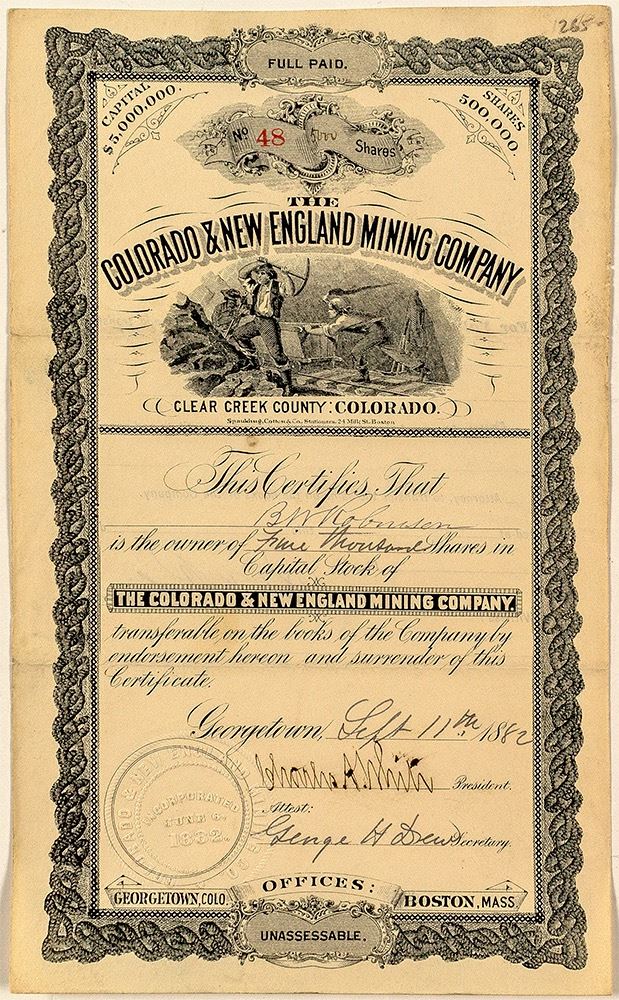 1265-
FULL PAID.
CAPITAL
$5,000,000.
SHARES
500,000.
No 48 5000 Shares
THE
COLORADO & NEW ENGLAND MINING COMPANY
CLEAR CREEK COUNTY: COLORADO.
Spaulding, Cotton & Co., Stationers, 24 Milk St. Boston
This Certifies, That
B W Robinson
is the owner of Five Thousand Shares in
Capital Stock of
THE COLORADO & NEW ENGLAND MINING COMPANY.
transferable on the books of the Company by
endorsement hereon and surrender of this
Certificate.
Georgetown, Sept 11th 1882
President.
Attest:
George H Dew Secretary.
COLORADO & NEW ENGLAND
INCORPORATED
JUNE 6,
1882.
OFFICES:
GEORGETOWN, COLO. BOSTON, MASS.
UNASSESSABLE.